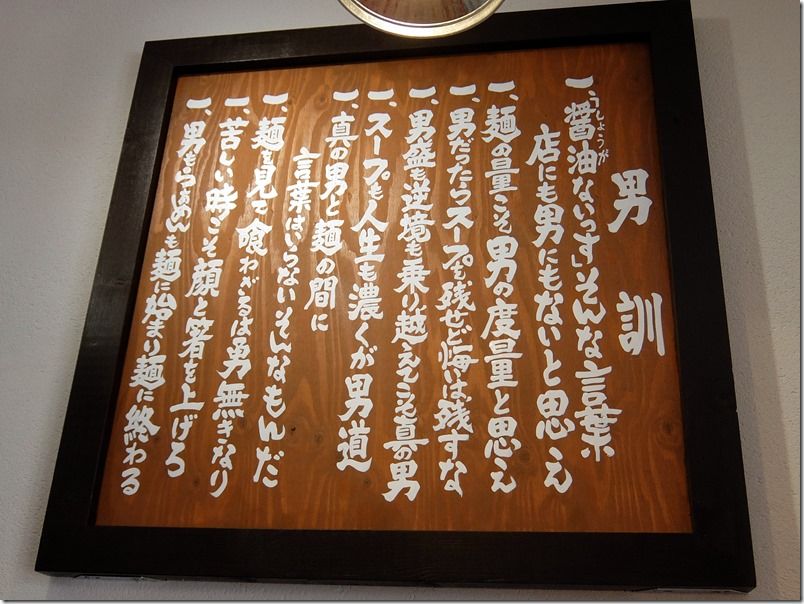 男訓
一、「醤油ないっす」そんな言葉
しょうが
店にも男にもないと思え
一、麺の量こそ男の度量と思え
一、男だったらスープを残せど悔いは残すな
一、男盛も逆境も乗り越えてこそ真の男
一、スープも人生も濃くが男道
一、真の男と麺の間に
言葉はいらないそんなもんだ
一、麺を見て喰わざるは勇無きなり
一、苦しい時こそ顔と箸を上げろ
一、男もらぁめんも麺に始まり麺に終わる